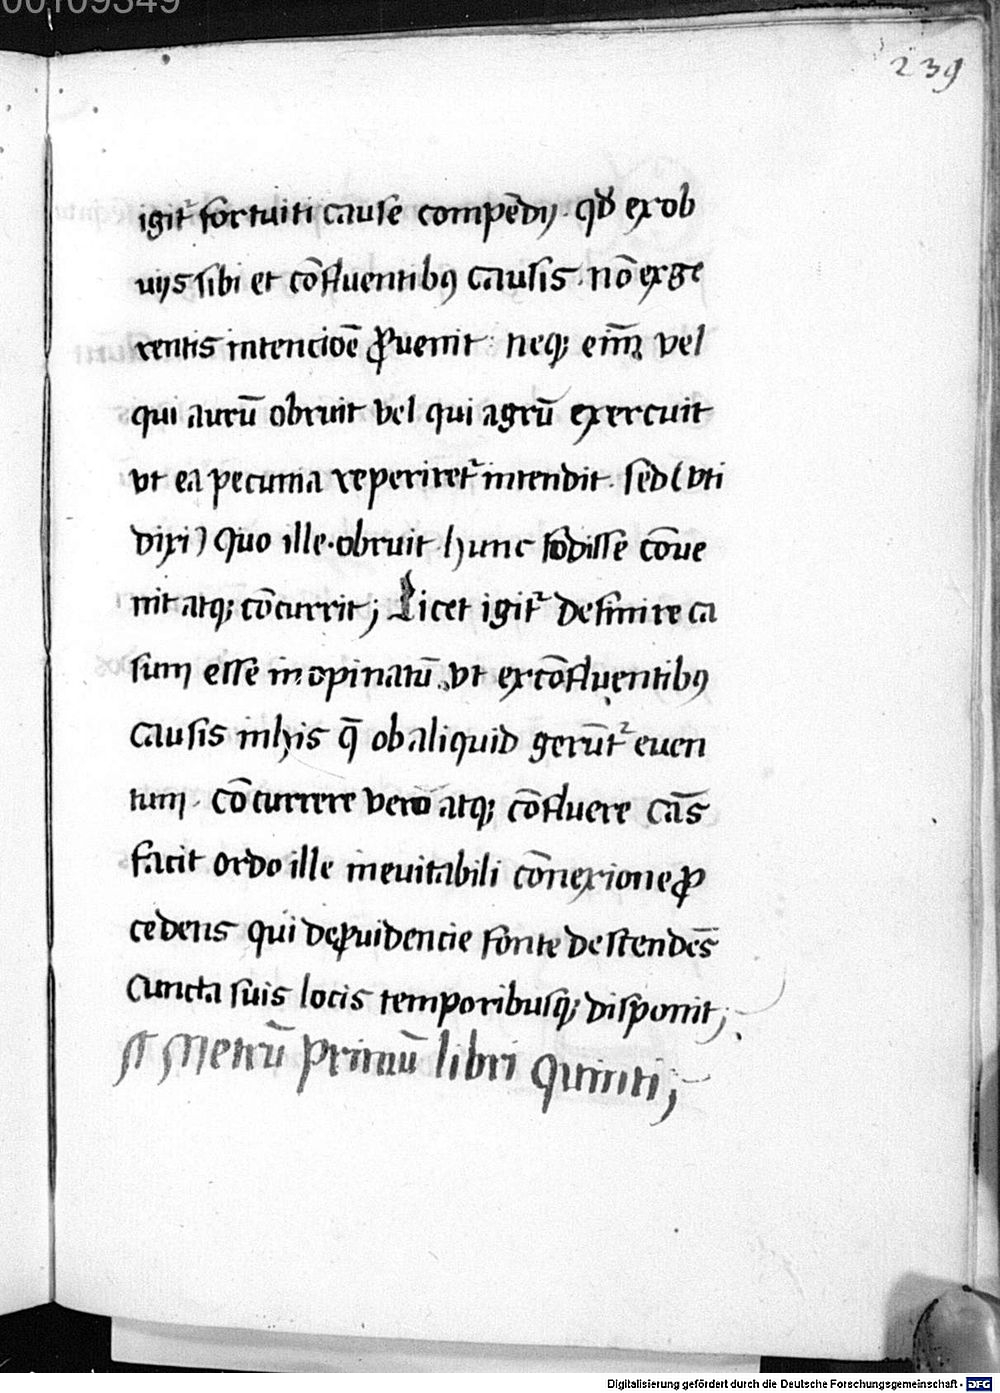 00109349
239
igit᷑ fortuiti cause compēdij. qđ ex ob
uijs sibi et cōfluentibꝰ causis. nō ex ge
rentis intencioē ꝓuenit: neqꝫ enī vel
qui aurū obruit vel qui agrū exercuit
vt ea pecunia reperiret᷑ intendit. sed (vti
dixi) quo ille. obruit hunc fodisse cōue
nit atqꝫ cōcurrit; Licet igit᷑ definire ca
sum esse inopinatū. vt ex cōfluentibꝰ
causis in his q̄ ob aliquid gerūt᷑ euen
tum. Cōcurrere vero atqꝫ cōfluere cās
facit ordo ille ineuitabili cōnexione ꝓ
cedens qui de ꝓuidencie fonte descendēs
cuncta suis locis temporibusqꝫ disponit;
Metrū primū libri quinti;
Digitalisierung gefördert durch die Deutsche Forschungsgemeinschaft - DFG